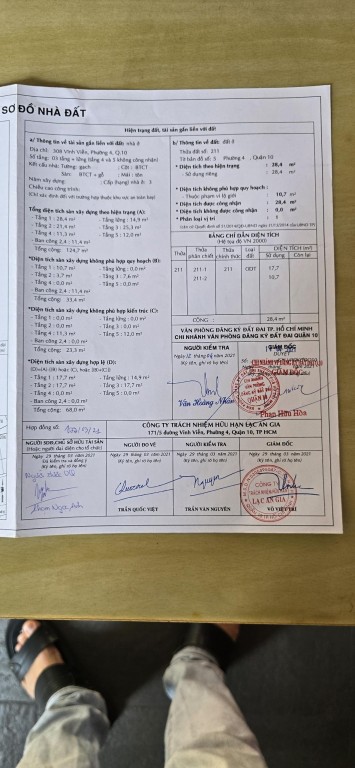 SƠ ĐỒ NHÀ ĐẤT
Hiện trạng đất, tài sản gắn liền với đất:
a/ Thông tin về tài sản gắn liền với đất: nhà ở
Địa chỉ: 308 Vĩnh Viễn, Phường 4, Q.10
Số tầng: 03 tầng + lửng (tầng 4 và 5 không công nhận)
Kết cấu nhà: Tường: gạch ; Cột : BTCT
Sàn: BTCT + gỗ ; Mái : tôn
Năm xây dựng: ; Cấp (hạng) nhà ở: 3
Chiều cao công trình:
Tổng diện tích sàn xây dựng theo hiện trạng (A):
- Tầng 1 : 28,4 m² - Tầng lửng : 14,9 m²
- Tầng 2 : 21,4 m² - Tầng 3 : 25,3 m²
- Tầng 4 : 11,3 m² - Tầng 5 : 12,0 m²
- Ban công 2,4 : 11,4 m²
Tổng cộng: 124,7 m²
*Diện tích sàn xây dựng không phù hợp quy hoạch (B):
- Tầng 1 : 10,7 m² - Tầng lửng : 0,0 m²
- Tầng 2 : 3,7 m² - Tầng 3 : 7,6 m²
- Tầng 4 : 0,0 m² - Tầng 5 : 0,0 m²
- Ban công 2,4 : 11,4 m²
Tổng cộng: 33,4 m²
*Diện tích sàn xây dựng không phù hợp kiến trúc (C):
- Tầng 1 : 0,0 m² - Tầng lửng : 0,0 m²
- Tầng 2 : 0,0 m² - Tầng 3 : 0,0 m²
- Tầng 4 : 11,3 m² - Tầng 5 : 12,0 m²
- Ban công 2,4 : 0,0 m²
Tổng cộng: 23,3 m²
*Diện tích sàn xây dựng hợp lệ (D):
(D)=(A)-(B) hoặc (C), hoặc (B)+(C)
- Tầng 1 : 17,7 m² - Tầng lửng : 14,9 m²
- Tầng 2 : 17,7 m² - Tầng 3 : 17,7 m²
- Tầng 4 : 0,0 m² - Tầng 5 : 0,0 m²
- Ban công 2,4 : 0,0 m²
Tổng cộng: 68,0 m²
b/ Thông tin về đất: đất ở
Thửa đất số: 211
Tờ bản đồ số: 5 Phường 4 , Quận 10
* Diện tích theo hiện trạng : 28,4 m²
- Sử dụng riêng : 28,4 m²
* Diện tích không phù hợp quy hoạch :
- Thuộc phạm vi lộ giới : 10,7 m²
* Diện tích được công nhận : 28,4 m²
* Diện tích không được công nhận : 0,0 m²
* Phân loại vị trí : 1
BẢNG CHỈ DẪN DIỆN TÍCH
(Hệ tọa độ VN 2000)
Thửa Thửa phân chiết Thửa chính thức Loại đất DIỆN TÍCH (m²) Sử dụng Còn lại
211 211-1 211 ODT 17,7
211-2 10,7
CỘNG : 28,4
VĂN PHÒNG ĐĂNG KÝ ĐẤT ĐAI TP. HỒ CHÍ MINH
CHI NHÁNH VĂN PHÒNG ĐĂNG KÝ ĐẤT ĐAI QUẬN 10
NGƯỜI KIỂM TRA
GIÁM ĐỐC
DUYỆT
(Ký tên, ghi rõ họ tên)
Văn Hoàng Nhân
Phan Hữu Hòa
Hợp đồng số:
CÔNG TY TRÁCH NHIỆM HỮU HẠN LẠC AN GIA
171/5 đường Vĩnh Viễn, Phường 4, Quận 10, TP HCM
NGƯỜI SDĐ/CHỦ SỞ HỮU TÀI SẢN
(Hoặc người đại diện cho tổ chức)
Ngày 29 tháng 03 năm 2021
NGƯỜI ĐO VẼ
Ngày 29 tháng 03 năm 2021
(Ký tên, ghi rõ họ tên)
TRẦN QUỐC VIỆT
NGƯỜI KIỂM TRA
Ngày 29 tháng 03 năm 2021
(Ký tên, ghi rõ họ tên)
TRẦN VĂN NGUYÊN
GIÁM ĐỐC
Ngày 29 tháng 03 năm 2021
(Ký tên, ghi rõ họ tên)
CÔNG TY
TRÁCH NHIỆM HỮU HẠN
LẠC AN GIA
VÕ VIẾT TRÍ